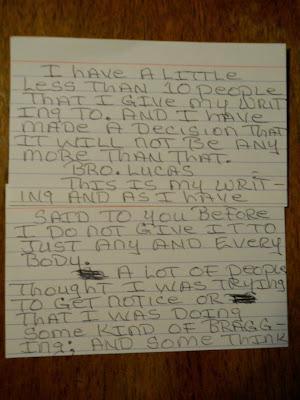 I HAVE A LITTLE
LESS THAN 10 PEOPLE
THAT I GIVE MY WRIT
ING TO. AND I HAVE
MADE A DECISION THAT
IT WILL NOT BE ANY
MORE THAN THAT.
BRO. LUCAS
THIS IS MY WRIT-
ING AND AS I HAVE
SAID TO YOU BEFORE
I DO NOT GIVE IT TO
JUST ANY AND EVERY
BODY.
A LOT OF PEOPLE
THOUGHT I WAS TRYING
TO GET NOTICE OR
THAT I WAS DOING
SOME KIND OF BRAGG
ING; AND SOME THINK